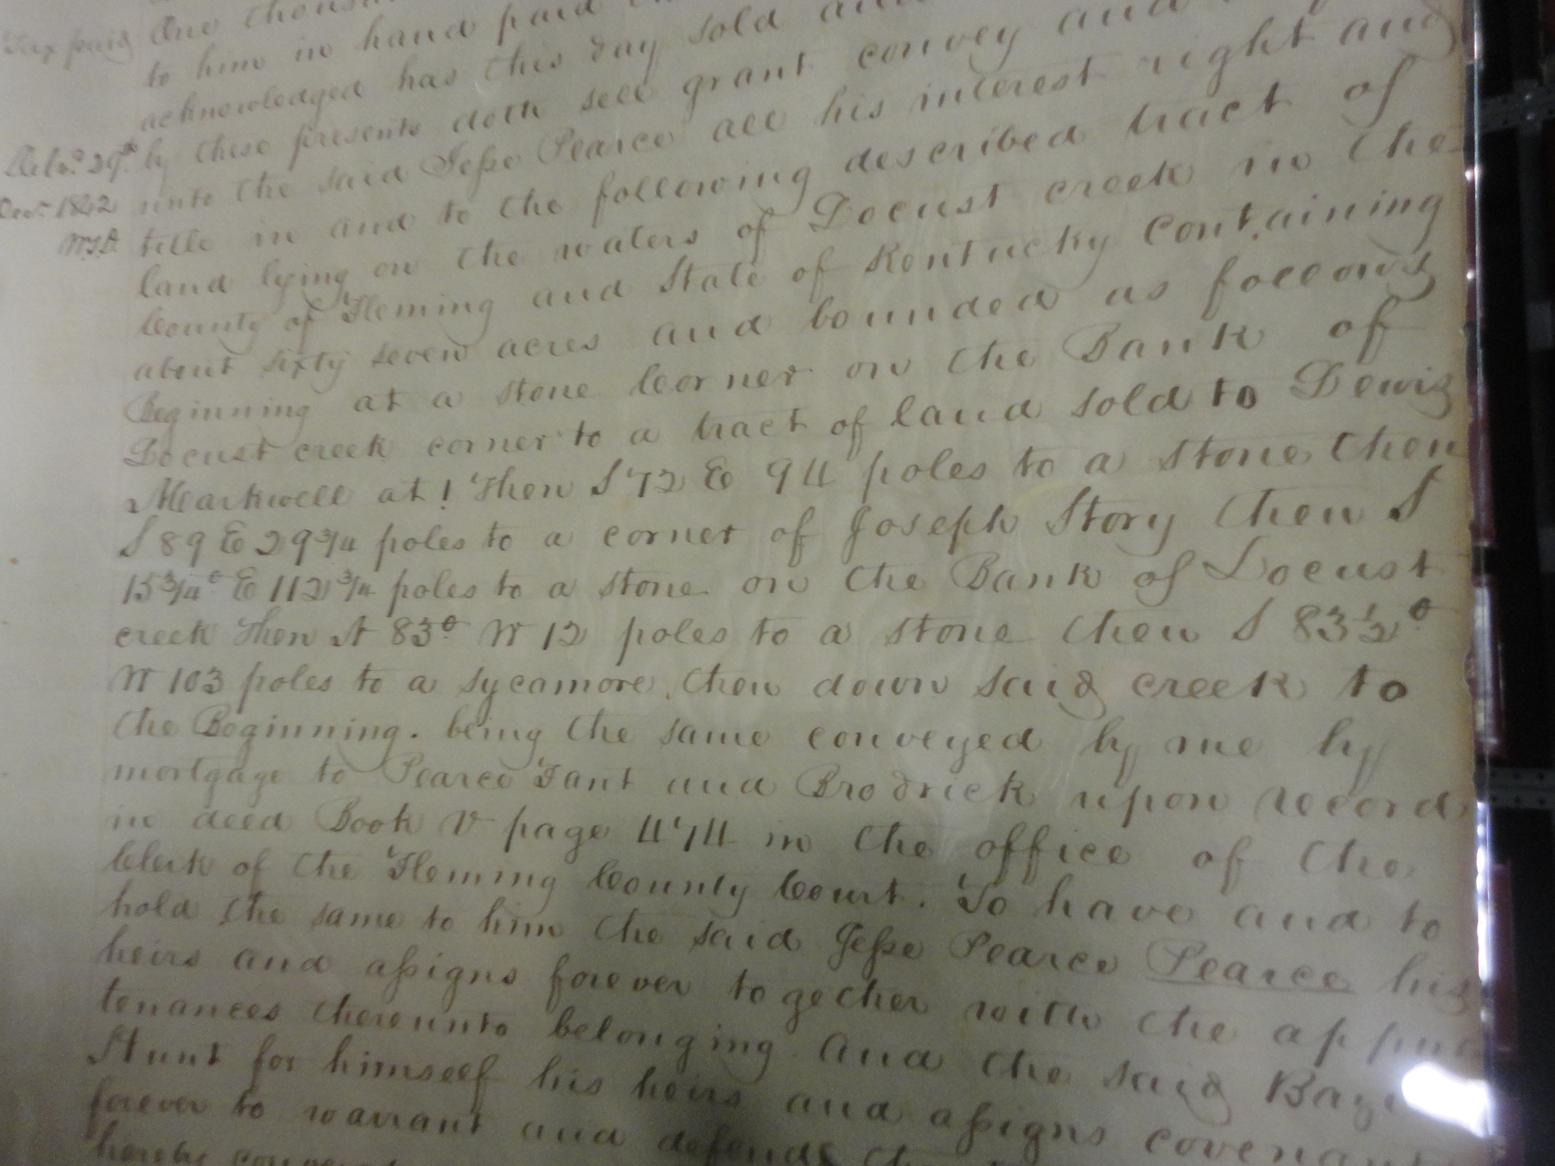 Tax paid
One thousan
to him in hand paid
acknowledged has this day sold and
by these presents doth sell grant convey and
unto the said Jesse Pearce all his interest right and
title in and to the following described tract of
land lying on the waters of Locust creek in the
County of Fleming and State of Kentucky containing
about sixty seven acres and bounded as follows
Beginning at a stone Corner on the Bank of
Locust creek corner to a tract of land sold to Lewis
Mearkwell at! Then S 72 E 94 poles to a stone then
S 89 E 29 3/4 poles to a corner of Joseph Story then S
15 3/4° E 112 3/4 poles to a stone on the Bank of Locust
creek Then N 83° W 12 poles to a stone then S 83 1/2°
W 103 poles to a sycamore, then down said creek to
the Beginning. being the same conveyed by me by
mortgage to Pearce Fant and Brodrick upon record
in deed Book V page 474 in the office of the
Clerk of the Fleming County Court. To have and to
hold the same to him the said Jesse Pearce Pearce his
heirs and assigns forever together with the appur
tenances thereunto belonging. And the said Baz
Hunt for himself his heirs and assigns covenant
forever to warrant and defend
hereby conveye
Delvd. 29th
Decr. 1842